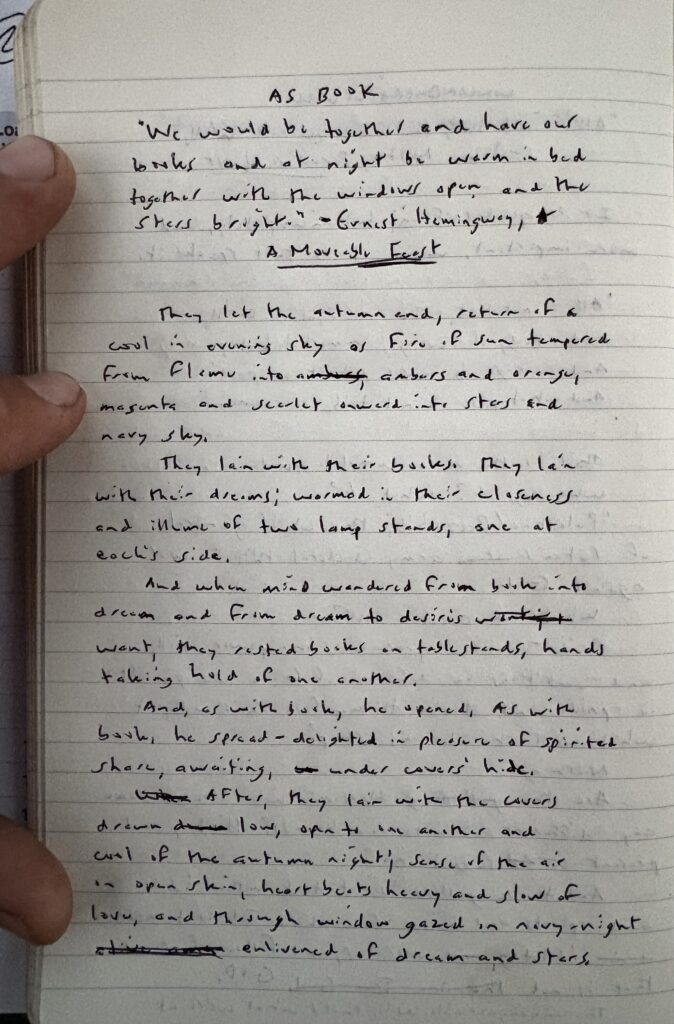 AS BOOK
"We would be together and have our
books and at night be warm in bed
together with the windows open and the
stars bright." - Ernest Hemingway,
A Moveable Feast
They let the autumn end, return of a
cool in evening sky as fire of sun tempered
from flame into ambers and orange,
magenta and scarlet onward into stars and
navy sky.
They lain with their books. They lain
with their dreams; warmed in their closeness
and illume of two lamp stands, one at
each's side.
And when mind wandered from book into
dream and from dream to desiris
want, they rested books on tablestands, hands
taking hold of one another.
And, as with book, he opened. As with
book, he spread - delighted in pleasure of spirited
share, awaiting, under covers' hide.
After, they lain with the covers
drawn low, open to one another and
cool of the autumn night; sense of the air
on open skin, heart beats heavy and slow of
love, and through window gazed on navy-night
enlivened of dream and stars.